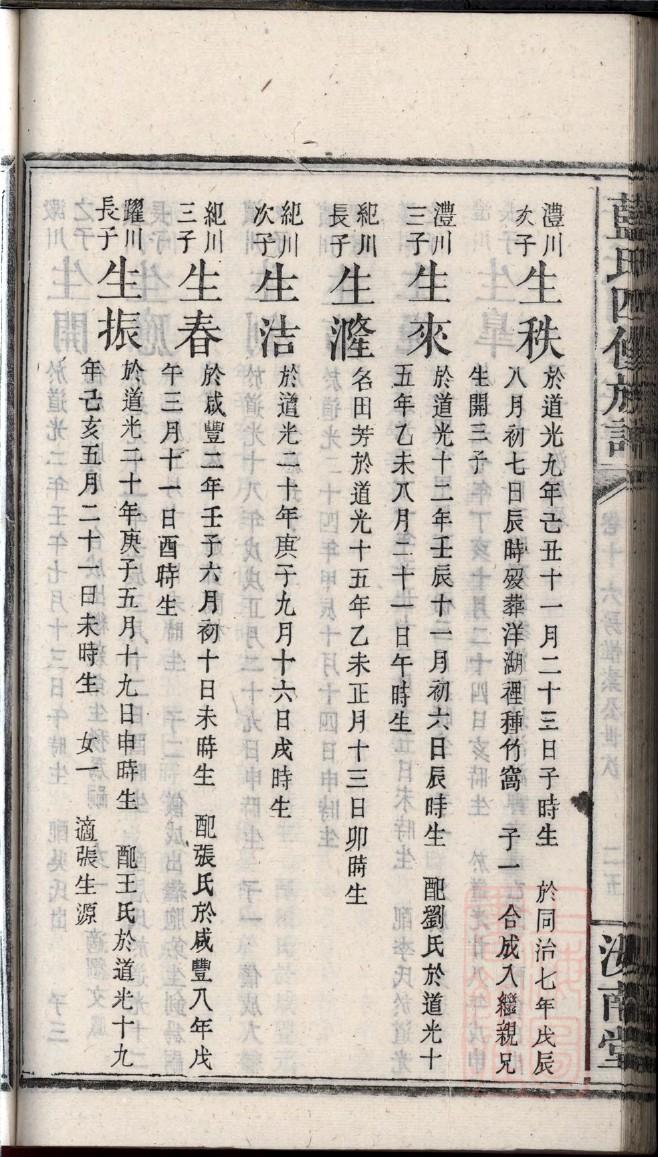 藍氏四修族譜
卷十六房惟素公世次
二五
汝南堂
澧川次子生秩於道光九年己丑十一月二十三日子時生 於同治七年戊辰
八月初七日辰時歿葬洋湖裡種竹窩 子一 合成入繼親兄
生開三子
澧川三子生來於道光十二年壬辰十一月初六日辰時生 配劉氏於道光十
五年乙未八月二十一日午時生
紀川長子生瀣名田芳於道光十五年乙未正月十三日卯時生
紀川次子生洁於道光二十年庚子九月十六日戌時生
紀川三子生春於咸豐二年壬子六月初十日未時生 配張氏於咸豐八年戊
午三月十一日酉時生
躍川長子生振於道光二十年庚子五月十九日申時生 配王氏於道光十九
年己亥五月二十一日未時生 女一 適張生源